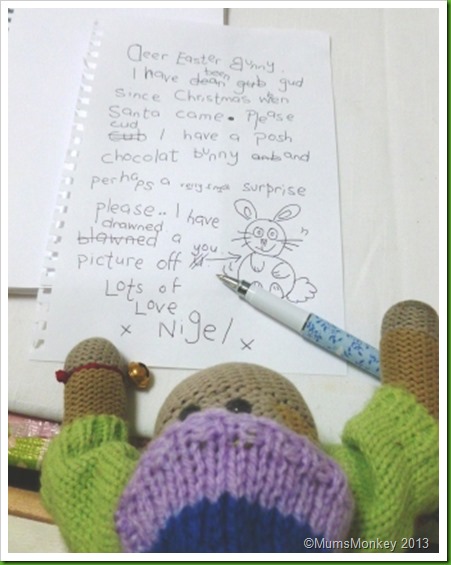 Deer Easter Bunny.
been
I have dean gub gud
since Christmas wen
Santa came. Please
cud
Cub I have a Posh
chocolat bunny amb and
perhaps a surprise
please.. I have
drawned
blawned a you
picture off
Lots of
Love
x Nigel x
©MumsMonkey 2013